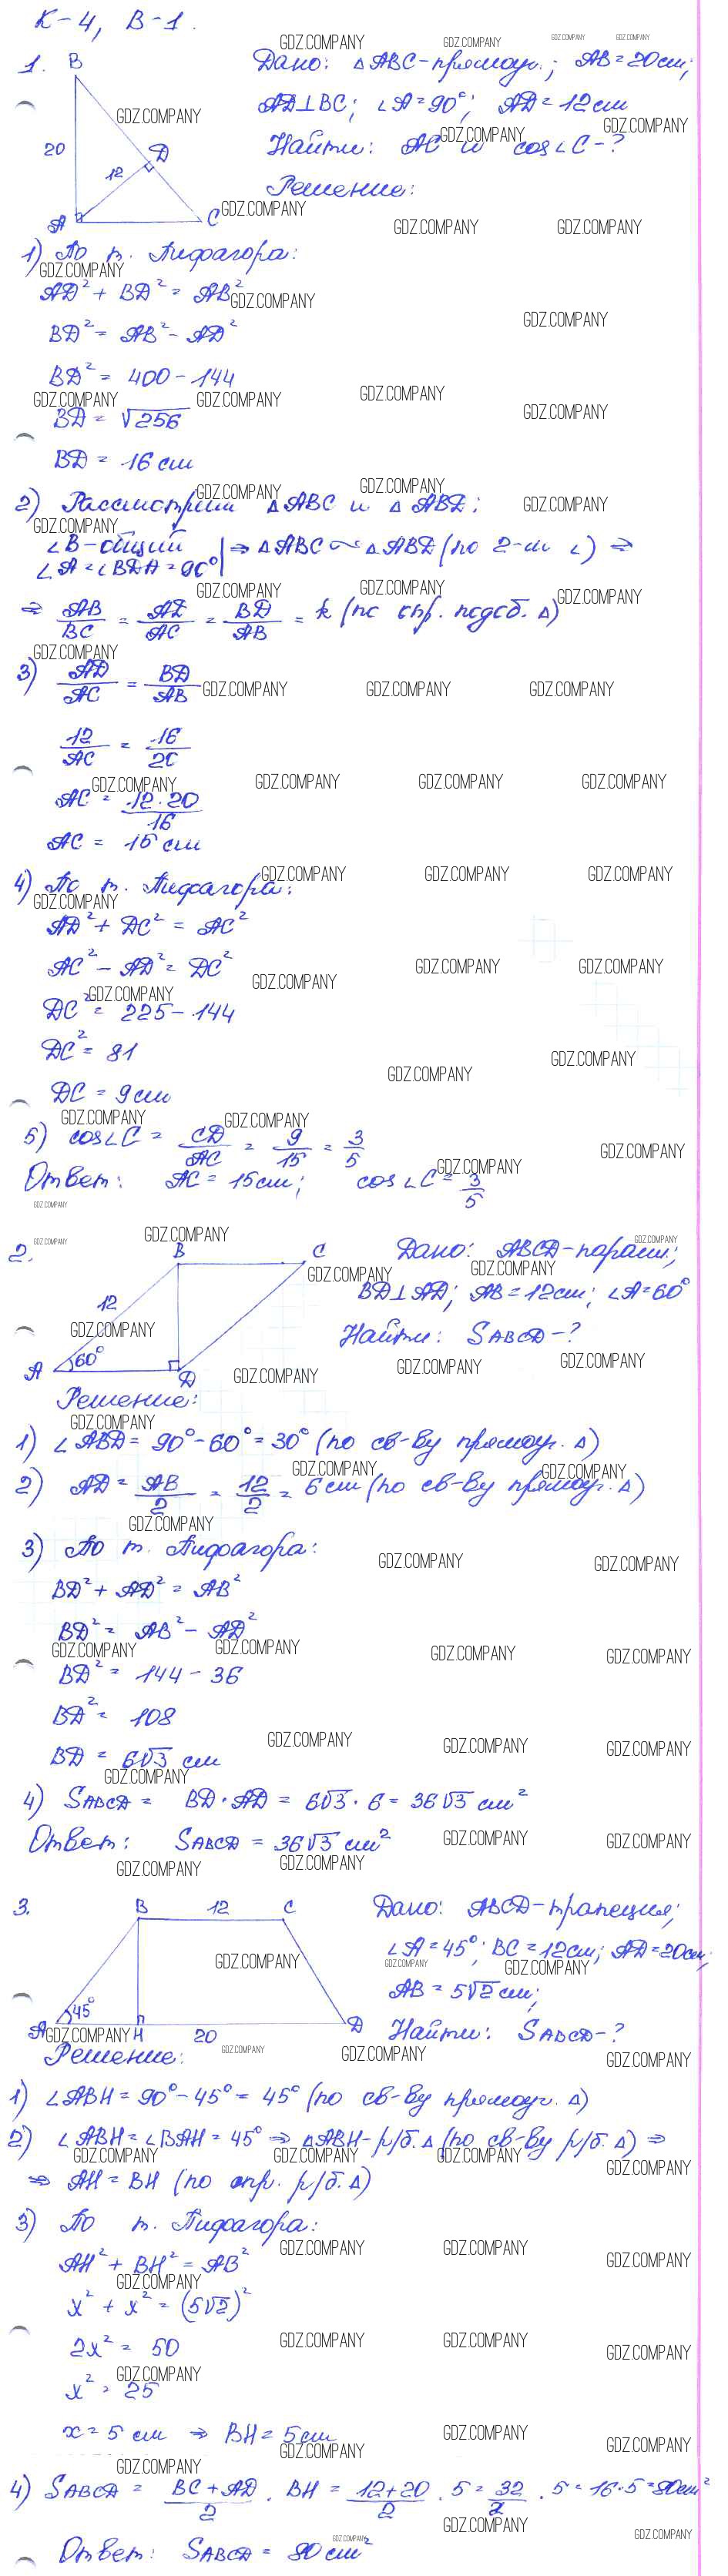 К-4, В-1.
1. Дано: △ABC-прямоуг.; AB=20см;
AD⊥BC; ∠A=90°; AD=12см
Найти: AC и cos∠C-?
Решение:
B
20
12
D
A
C
1) По т. Пифагора:
AD²+BD²=AB²
BD²=AB²-AD²
BD²=400-144
BD=√256
BD=16 см
2) Рассмотрим △ABC и △ABD:
∠B-общий
∠A=∠BDA=90° | ⇒ △ABC∼△ABD (по 2-м ∠) ⇒
⇒ AB/BC = AD/AC = BD/AB = k (по опр. подоб. △)
3) AD/AC = BD/AB
12/AC = 16/20
AC = 12·20/16
AC = 15 см
4) По т. Пифагора:
AD²+DC²=AC²
AC²-AD²=DC²
DC²=225-144
DC²=81
DC=9см
5) cos∠C = CD/AC = 9/15 = 3/5
Ответ: AC=15см; cos∠C=3/5
2. Дано: ABCD-паралл;
BD⊥AD; AB=12см; ∠A=60°
Найти: SABCD-?
B
C
12
A
60°
D
Решение:
1) ∠ABD=90°-60°=30° (по св-ву прямоуг. △)
2) AD = AB/2 = 12/2 = 6см (по св-ву прямоуг. △)
3) По т. Пифагора:
BD²+AD²=AB²
BD²=AB²-AD²
BD²=144-36
BD²=108
BD=6√3 см
4) SABCD = BD·AD = 6√3·6 = 36√3 см²
Ответ: SABCD = 36√3 см²
3. Дано: ABCD-трапеция;
∠A=45°; BC=12см; AD=20см;
AB=5√2 см;
Найти: SABCD-?
B
12
C
45°
A
H
20
D
Решение:
1) ∠ABH=90°-45°=45° (по св-ву прямоуг. △)
2) ∠ABH=∠BAH=45° ⇒ △ABH-р/б.△ (по св-ву р/б. △) ⇒
⇒ AH=BH (по опр. р/б. △)
3) По т. Пифагора:
AH²+BH²=AB²
x²+x²=(5√2)²
2x²=50
x²=25
x=5 см ⇒ BH=5см
4) SABCD = BC+AD/2 · BH = 12+20/2 · 5 = 32/2 · 5 = 16·5=80см²
Ответ: SABCD = 80 см²
GDZ.COMPANY